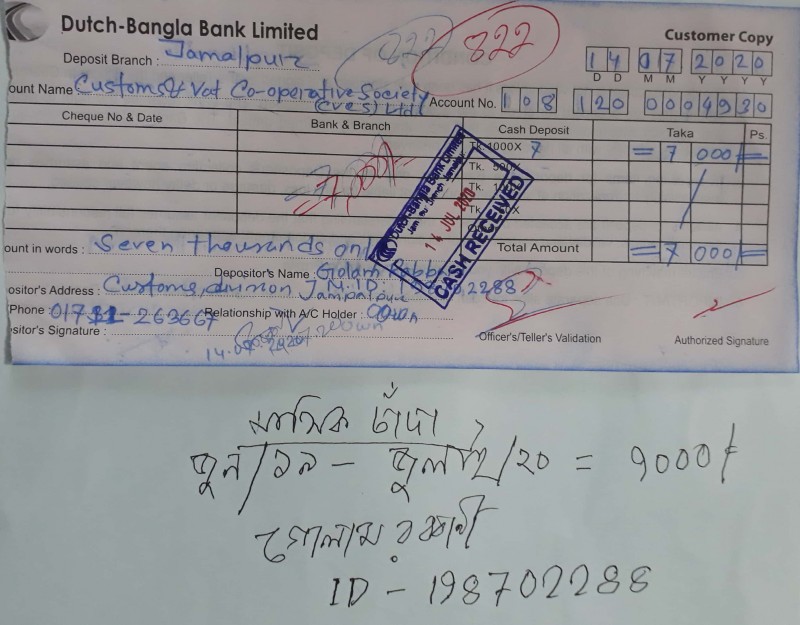 Dutch-Bangla Bank Limited
Customer Copy
822 822
Deposit Branch : Jamalpur
14 07 2020
D D M M Y Y Y Y
ount Name Customs & Vat Co-operative Society
(CVCS) Ltd
Account No. 108 120 0004930
Cheque No & Date Bank & Branch Cash Deposit Taka Ps.
Tk. 1000X 7 = 7 000/=
= 7,000/=
Tk. 500X
Tk.
Tk.
Dutch-Bangla Bank Limited
14 JUL 2020
CASH RECEIVED
ount in words : Seven thousands only
Total Amount = 7 000/=
Depositor's Name : Golam Rabb
ositor's Address : Customs, Jamalpur
2288
Phone Relationship with A/C Holder : Own
ositor's Signature :
14.07.2020
Officer's/Teller's Validation
Authorized Signature
মাসিক চাঁদা
জুন/১৯ - জুলাই/২০ = ৭০০০/
গোলাম রব্বানী
ID - 198702288